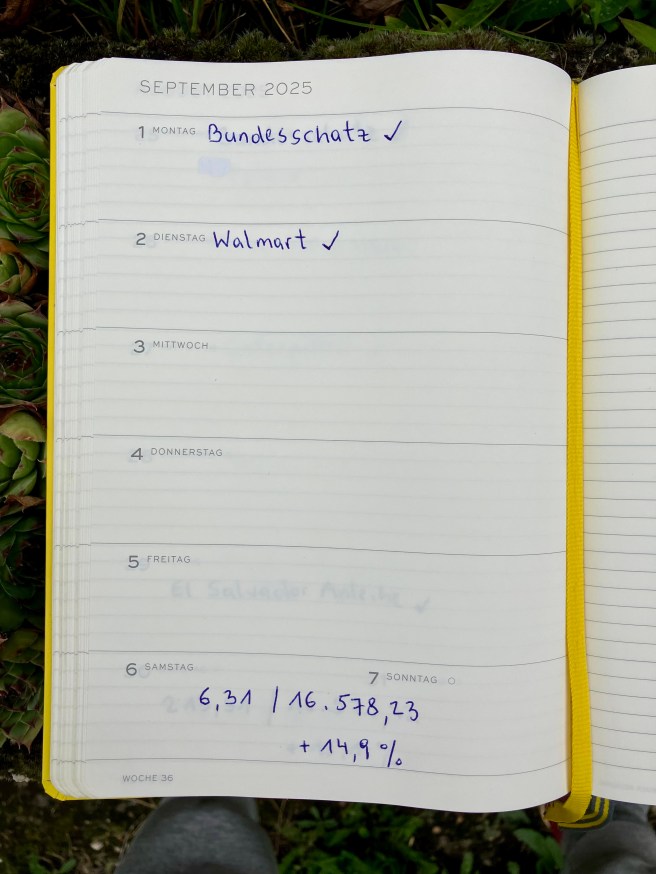 SEPTEMBER 2025
1 MONTAG Bundesschatz ✓
2 DIENSTAG Walmart ✓
3 MITTWOCH
4 DONNERSTAG
5 FREITAG
6 SAMSTAG 7 SONNTAG
6,31 / 16.578,23
+ 14,9 %
WOCHE 36